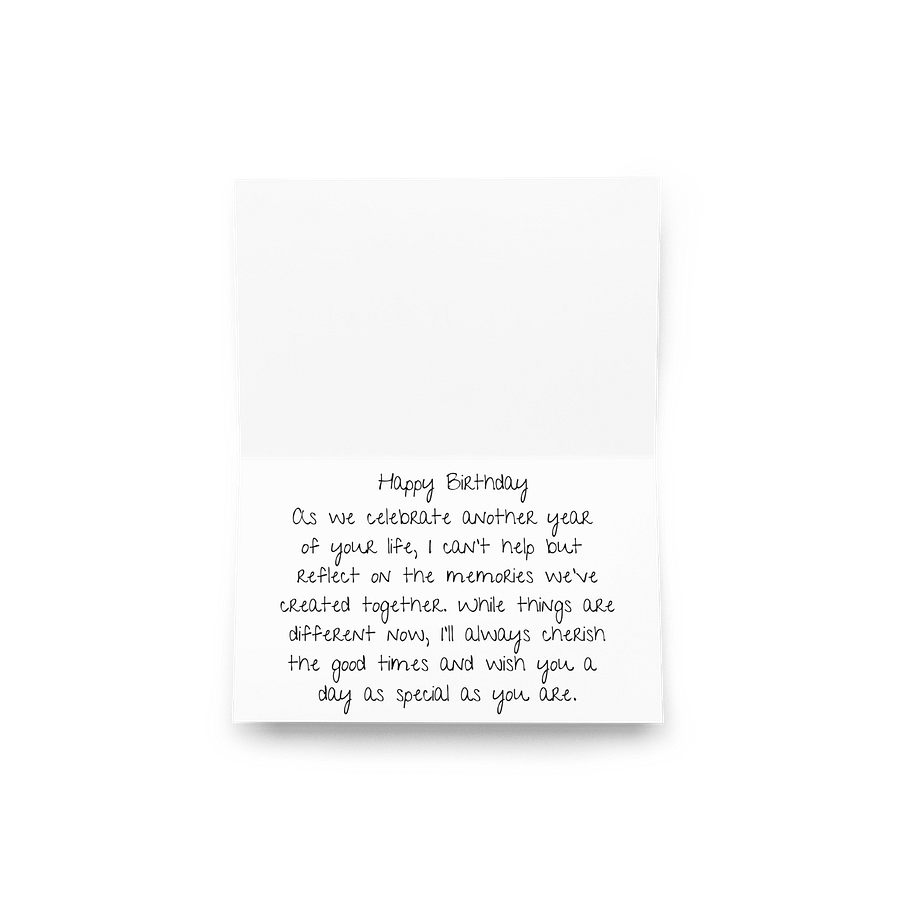 Happy Birthday
As we celebrate another year
of your life, I can't help but
reflect on the memories we've
created together. While things are
different now, I'll always cherish
the good times and wish you a
day as special as you are.